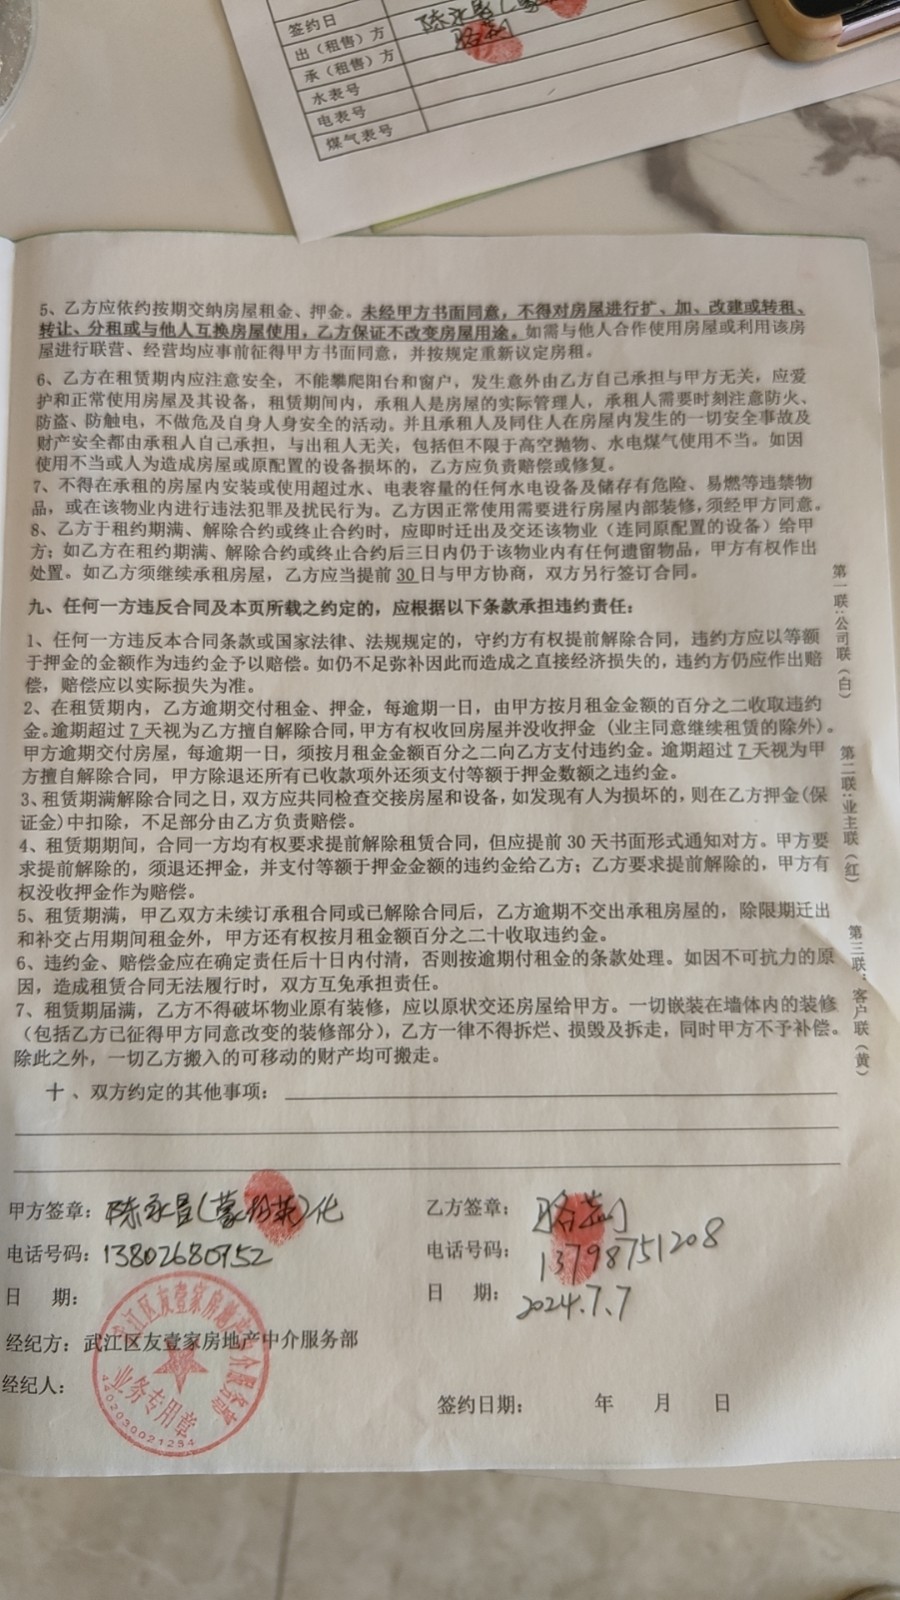 签约日
出（租售）方
陈永昌（蒙
承（租售）方
水表号
电表号
煤气表号
5、乙方应依约按期交纳房屋租金、押金。未经甲方书面同意，不得对房屋进行扩、加、改建或转租、
转让、分租或与他人互换房屋使用，乙方保证不改变房屋用途。如需与他人合作使用房屋或利用该房
屋进行联营、经营均应事前征得甲方书面同意，并按规定重新议定房租。
6、乙方在租赁期内应注意安全，不能攀爬阳台和窗户，发生意外由乙方自己承担与甲方无关，应爱
护和正常使用房屋及其设备，租赁期间内，承租人是房屋的实际管理人，承租人需要时刻注意防火、
防盗、防触电，不做危及自身人身安全的活动。并且承租人及同住人在房屋内发生的一切安全事故及
财产安全都由承租人自己承担，与出租人无关，包括但不限于高空抛物、水电煤气使用不当。如因
使用不当或人为造成房屋或原配置的设备损坏的，乙方应负责赔偿或修复。
7、不得在承租的房屋内安装或使用超过水、电表容量的任何水电设备及储存有危险、易燃等违禁物
品，或在该物业内进行违法犯罪及扰民行为。乙方因正常使用需要进行房屋内部装修，须经甲方同意。
8、乙方于租约期满、解除合约或终止合约时，应即时迁出及交还该物业（连同原配置的设备）给甲
方；如乙方在租约期满、解除合约或终止合约后三日内仍于该物业内有任何遗留物品，甲方有权作出
处置。如乙方须继续承租房屋，乙方应当提前30日与甲方协商，双方另行签订合同。
九、任何一方违反合同及本页所载之约定的，应根据以下条款承担违约责任：
1、任何一方违反本合同条款或国家法律、法规规定的，守约方有权提前解除合同，违约方应以等额
于押金的金额作为违约金予以赔偿。如仍不足弥补因此而造成之直接经济损失的，违约方仍应作出赔
偿，赔偿应以实际损失为准。
2、在租赁期内，乙方逾期交付租金、押金，每逾期一日，由甲方按月租金金额的百分之二收取违约
金。逾期超过7天视为乙方擅自解除合同，甲方有权收回房屋并没收押金（业主同意继续租赁的除外）。
甲方逾期交付房屋，每逾期一日，须按月租金金额百分之二向乙方支付违约金。逾期超过7天视为甲
方擅自解除合同，甲方除退还所有已收款项外还须支付等额于押金数额之违约金。
3、租赁期满解除合同之日，双方应共同检查交接房屋和设备，如发现有人为损坏的，则在乙方押金(保
证金)中扣除，不足部分由乙方负责赔偿。
4、租赁期期间，合同一方均有权要求提前解除租赁合同，但应提前30天书面形式通知对方。甲方要
求提前解除的，须退还押金，并支付等额于押金金额的违约金给乙方；乙方要求提前解除的，甲方有
权没收押金作为赔偿。
5、租赁期满，甲乙双方未续订承租合同或已解除合同后，乙方逾期不交出承租房屋的，除限期迁出
和补交占用期间租金外，甲方还有权按月租金额百分之二十收取违约金。
6、违约金、赔偿金应在确定责任后十日内付清，否则按逾期付租金的条款处理。如因不可抗力的原
因，造成租赁合同无法履行时，双方互免承担责任。
7、租赁期届满，乙方不得破坏物业原有装修，应以原状交还房屋给甲方。一切嵌装在墙体内的装修
（包括乙方已征得甲方同意改变的装修部分），乙方一律不得拆烂、损毁及拆走，同时甲方不予补偿。
除此之外，一切乙方搬入的可移动的财产均可搬走。
十、双方约定的其他事项：
第一联：公司联（白）
第二联：业主联（红）
第三联：客户联（黄）
甲方签章：陈永昌（蒙 英）代
电话号码：13802680952
日 期：
乙方签章：
电话号码：13798751208
日 期：2024.7.7
经纪方：武江区友壹家房地产中介服务部
经纪人：
签约日期： 年 月 日
武江区友壹家房地产中介服务部
业务专用章
4402030021254